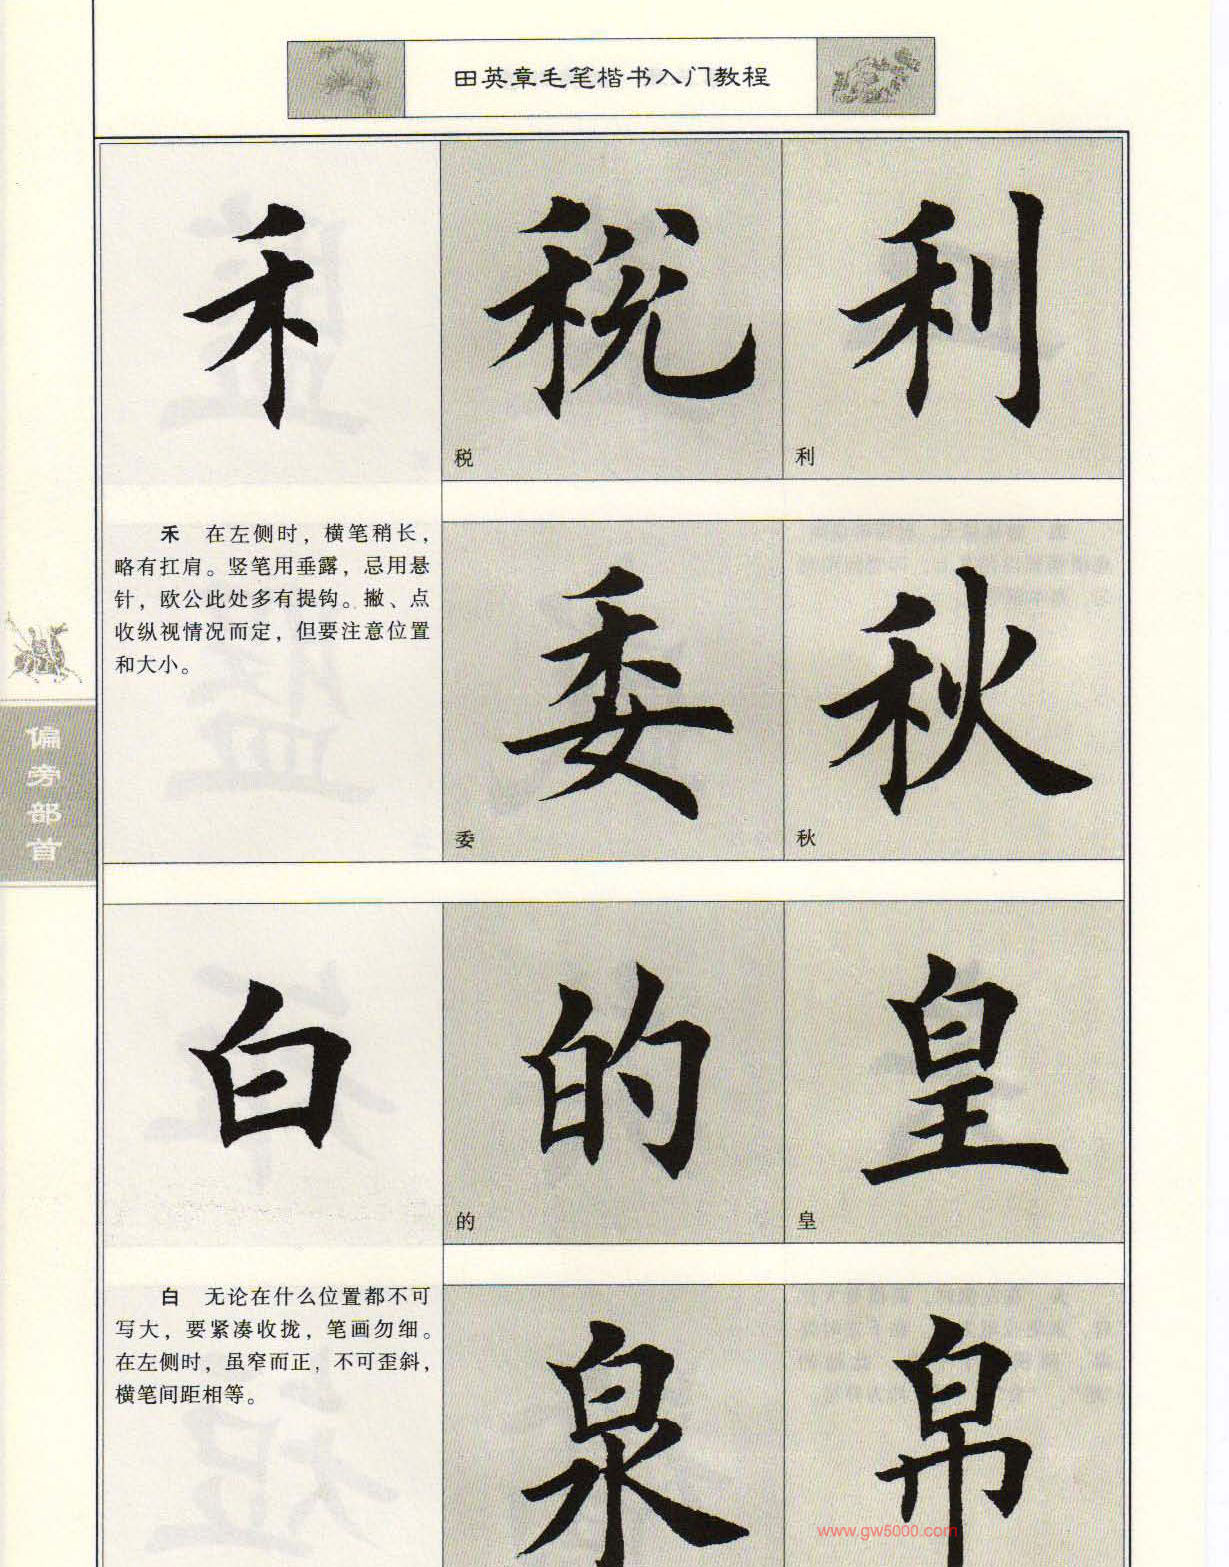 田英章毛笔楷书入门教程
禾 税 利
税 利
禾 在左侧时，横笔稍长，
略有扛肩。竖笔用垂露，忌用悬
针，欧公此处多有提钩。撇、点
收纵视情况而定，但要注意位置
和大小。
委 秋
委 秋
偏旁部首
白 的 皇
的 皇
白 无论在什么位置都不可
写大，要紧凑收拢，笔画勿细。
在左侧时，虽窄而正，不可歪斜，
横笔间距相等。
泉 帛
www.gw5000.com